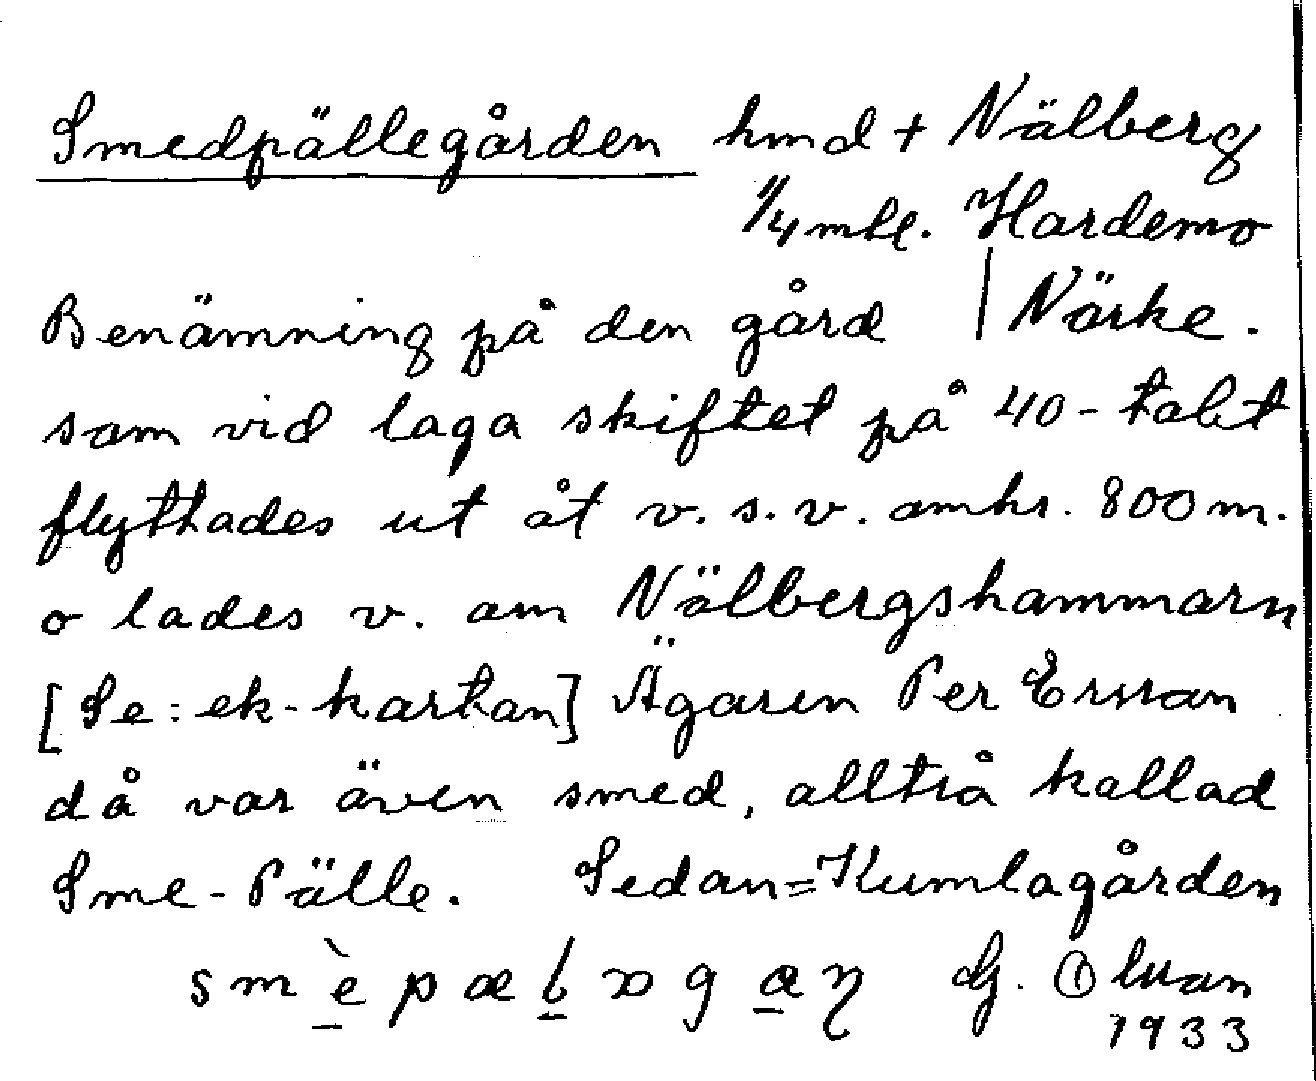 Smedpällegården hmd + Nälberg
1/4 mtl. Hardemo
Benämning på den gård | Närke.
som vid laga skiftet på 40-talet
flyttades ut åt v.s.v. omkr. 800 m.
o lades v. om Nälbergshammarn
[Se: ek-kartan] Ägaren Per Ersson
då var även smed, alltså kallad
Sme-Pälle. Sedan=Kumlagården
G. Olsson
1933